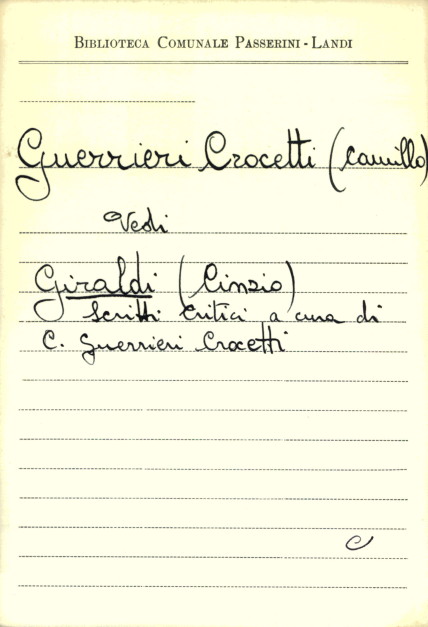 BIBLIOTECA COMUNALE PASSERINI - LANDI
Guerrieri Crocetti (Camillo)
Vedi
Giraldi (Cinzio)
Scritti critici a cura di
C. Guerrieri Crocetti
C